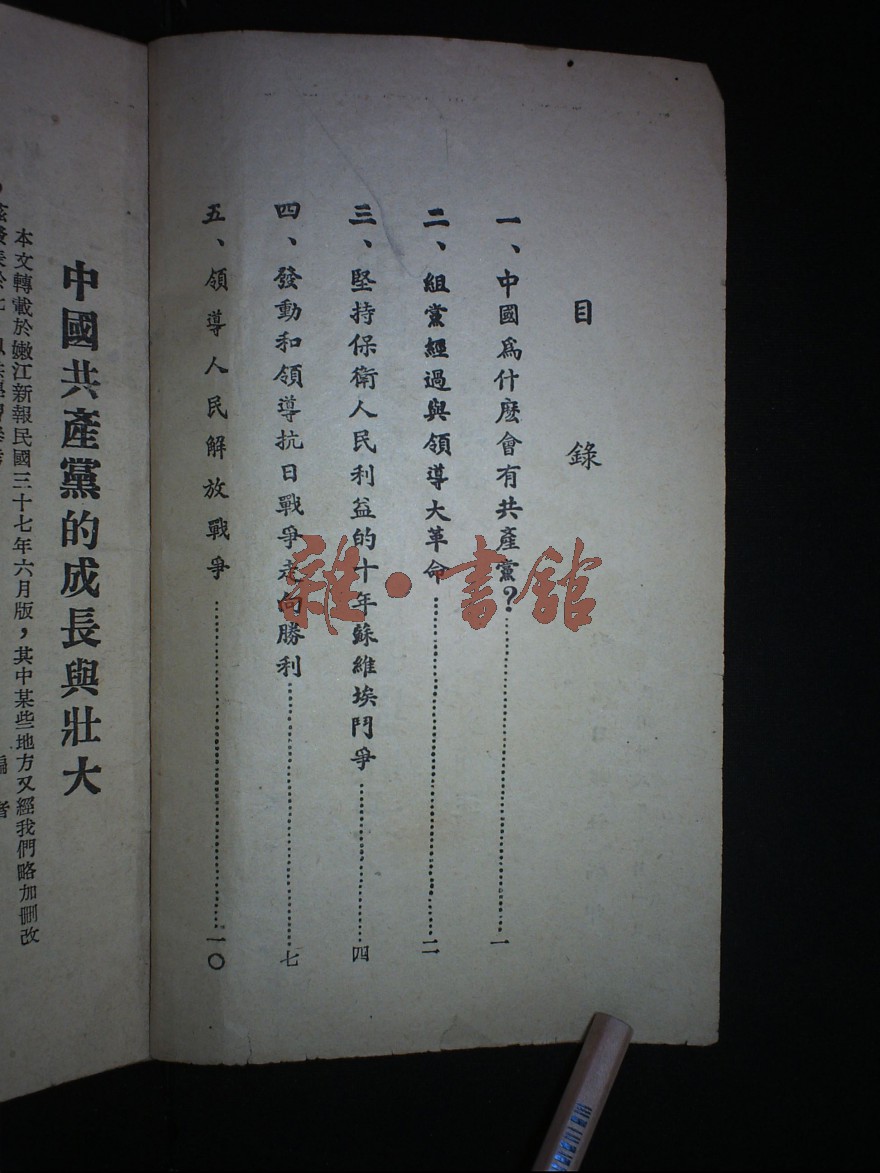 目錄
一、中國爲什麽會有共產黨？……一
二、組黨經過與領導大革命……二
三、堅持保衛人民利益的十年蘇維埃鬥爭……四
四、發動和領導抗日戰爭走向勝利……七
五、領導人民解放戰爭……一〇
中國共產黨的成長與壯大
本文轉載於嫩江新報民國三十七年六月版，其中某些地方又經我們略加刪改
編者
雜·書館